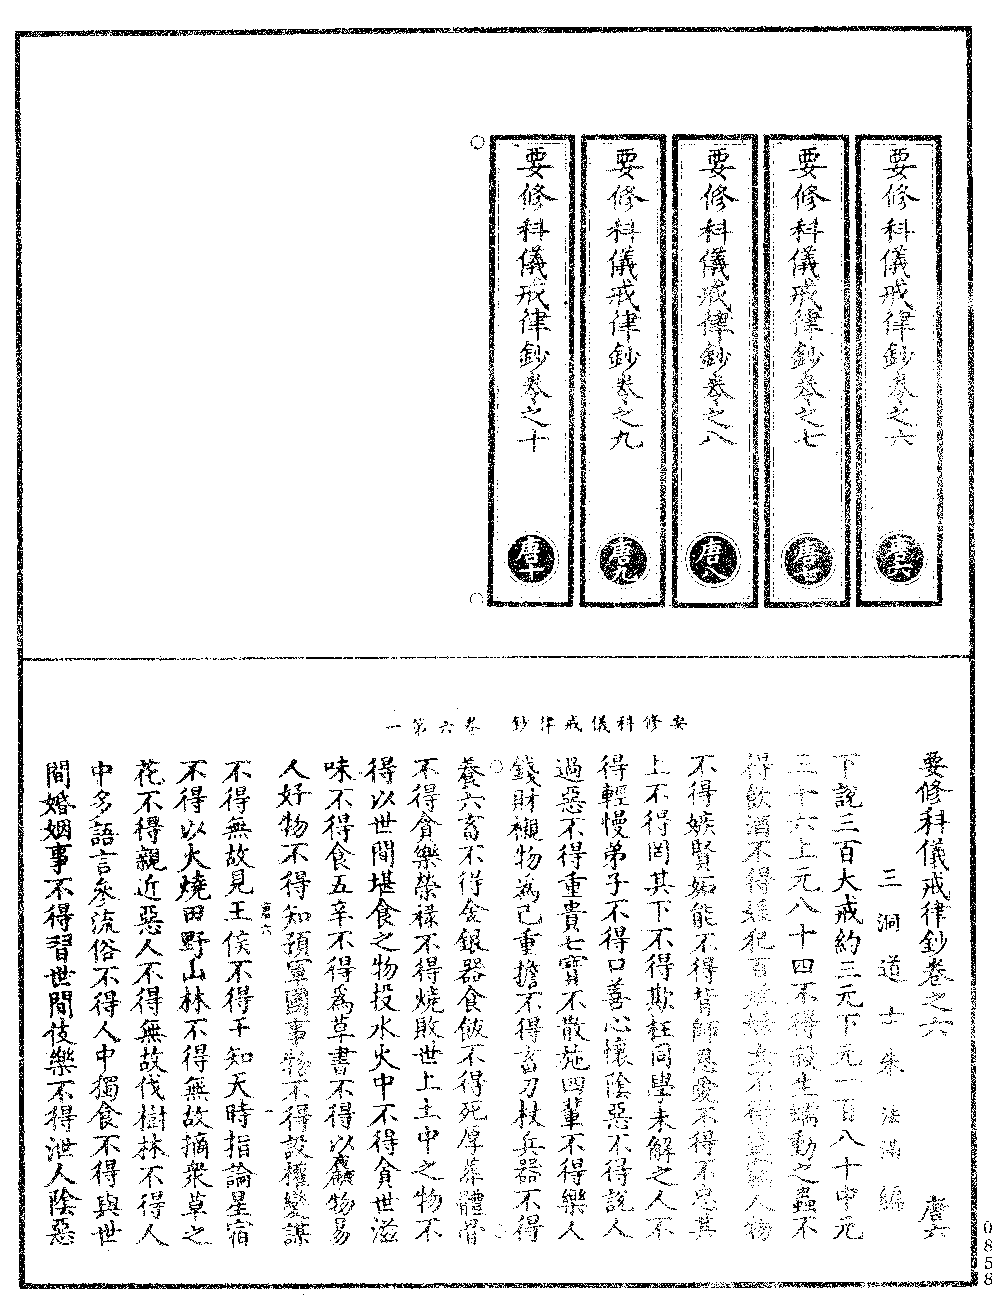 要修科儀戒律鈔卷之六
唐六
要修科儀戒律鈔卷之七
唐七
要修科儀戒律鈔卷之八
唐八
要修科儀戒律鈔卷之九
唐九
要修科儀戒律鈔卷之十
唐十
要修科儀戒律鈔 卷六第一
要修科儀戒律鈔卷之六 唐六
三洞道士朱法滿編
下說三百大戒約三元下元一百八十中元
三十六上元八十四不得殺生蠕動之蟲不
得飲酒不得婬犯百姓婦女不得盜竊人物
不得嫉賢妬能不得背師恩愛不得不忠其
上不得罔其下不得欺枉同學未解之人不
得輕慢弟子不得口善心懷陰惡不得說人
過惡不得重貴七寶不散施四輩不得樂人
錢財襯物為己重擔不得畜刀杖兵器不得
養六畜不得金銀器食飯不得死厚葬體骨
不得貪樂榮祿不得燒敗世上土中之物不
得以世間堪食之物投水火中不得貪世滋
味不得食五辛不得為草書不得以麤物易
人好物不得知預軍國事物不得設權變謀
唐六
不得無故見王侯不得干知天時指論星宿
不得以火燒田野山林不得無故摘衆草之
花不得親近惡人不得無故伐樹林不得人
中多語言參流俗不得人中獨食不得與世
間婚姻事不得習世間伎樂不得泄人陰惡
0858